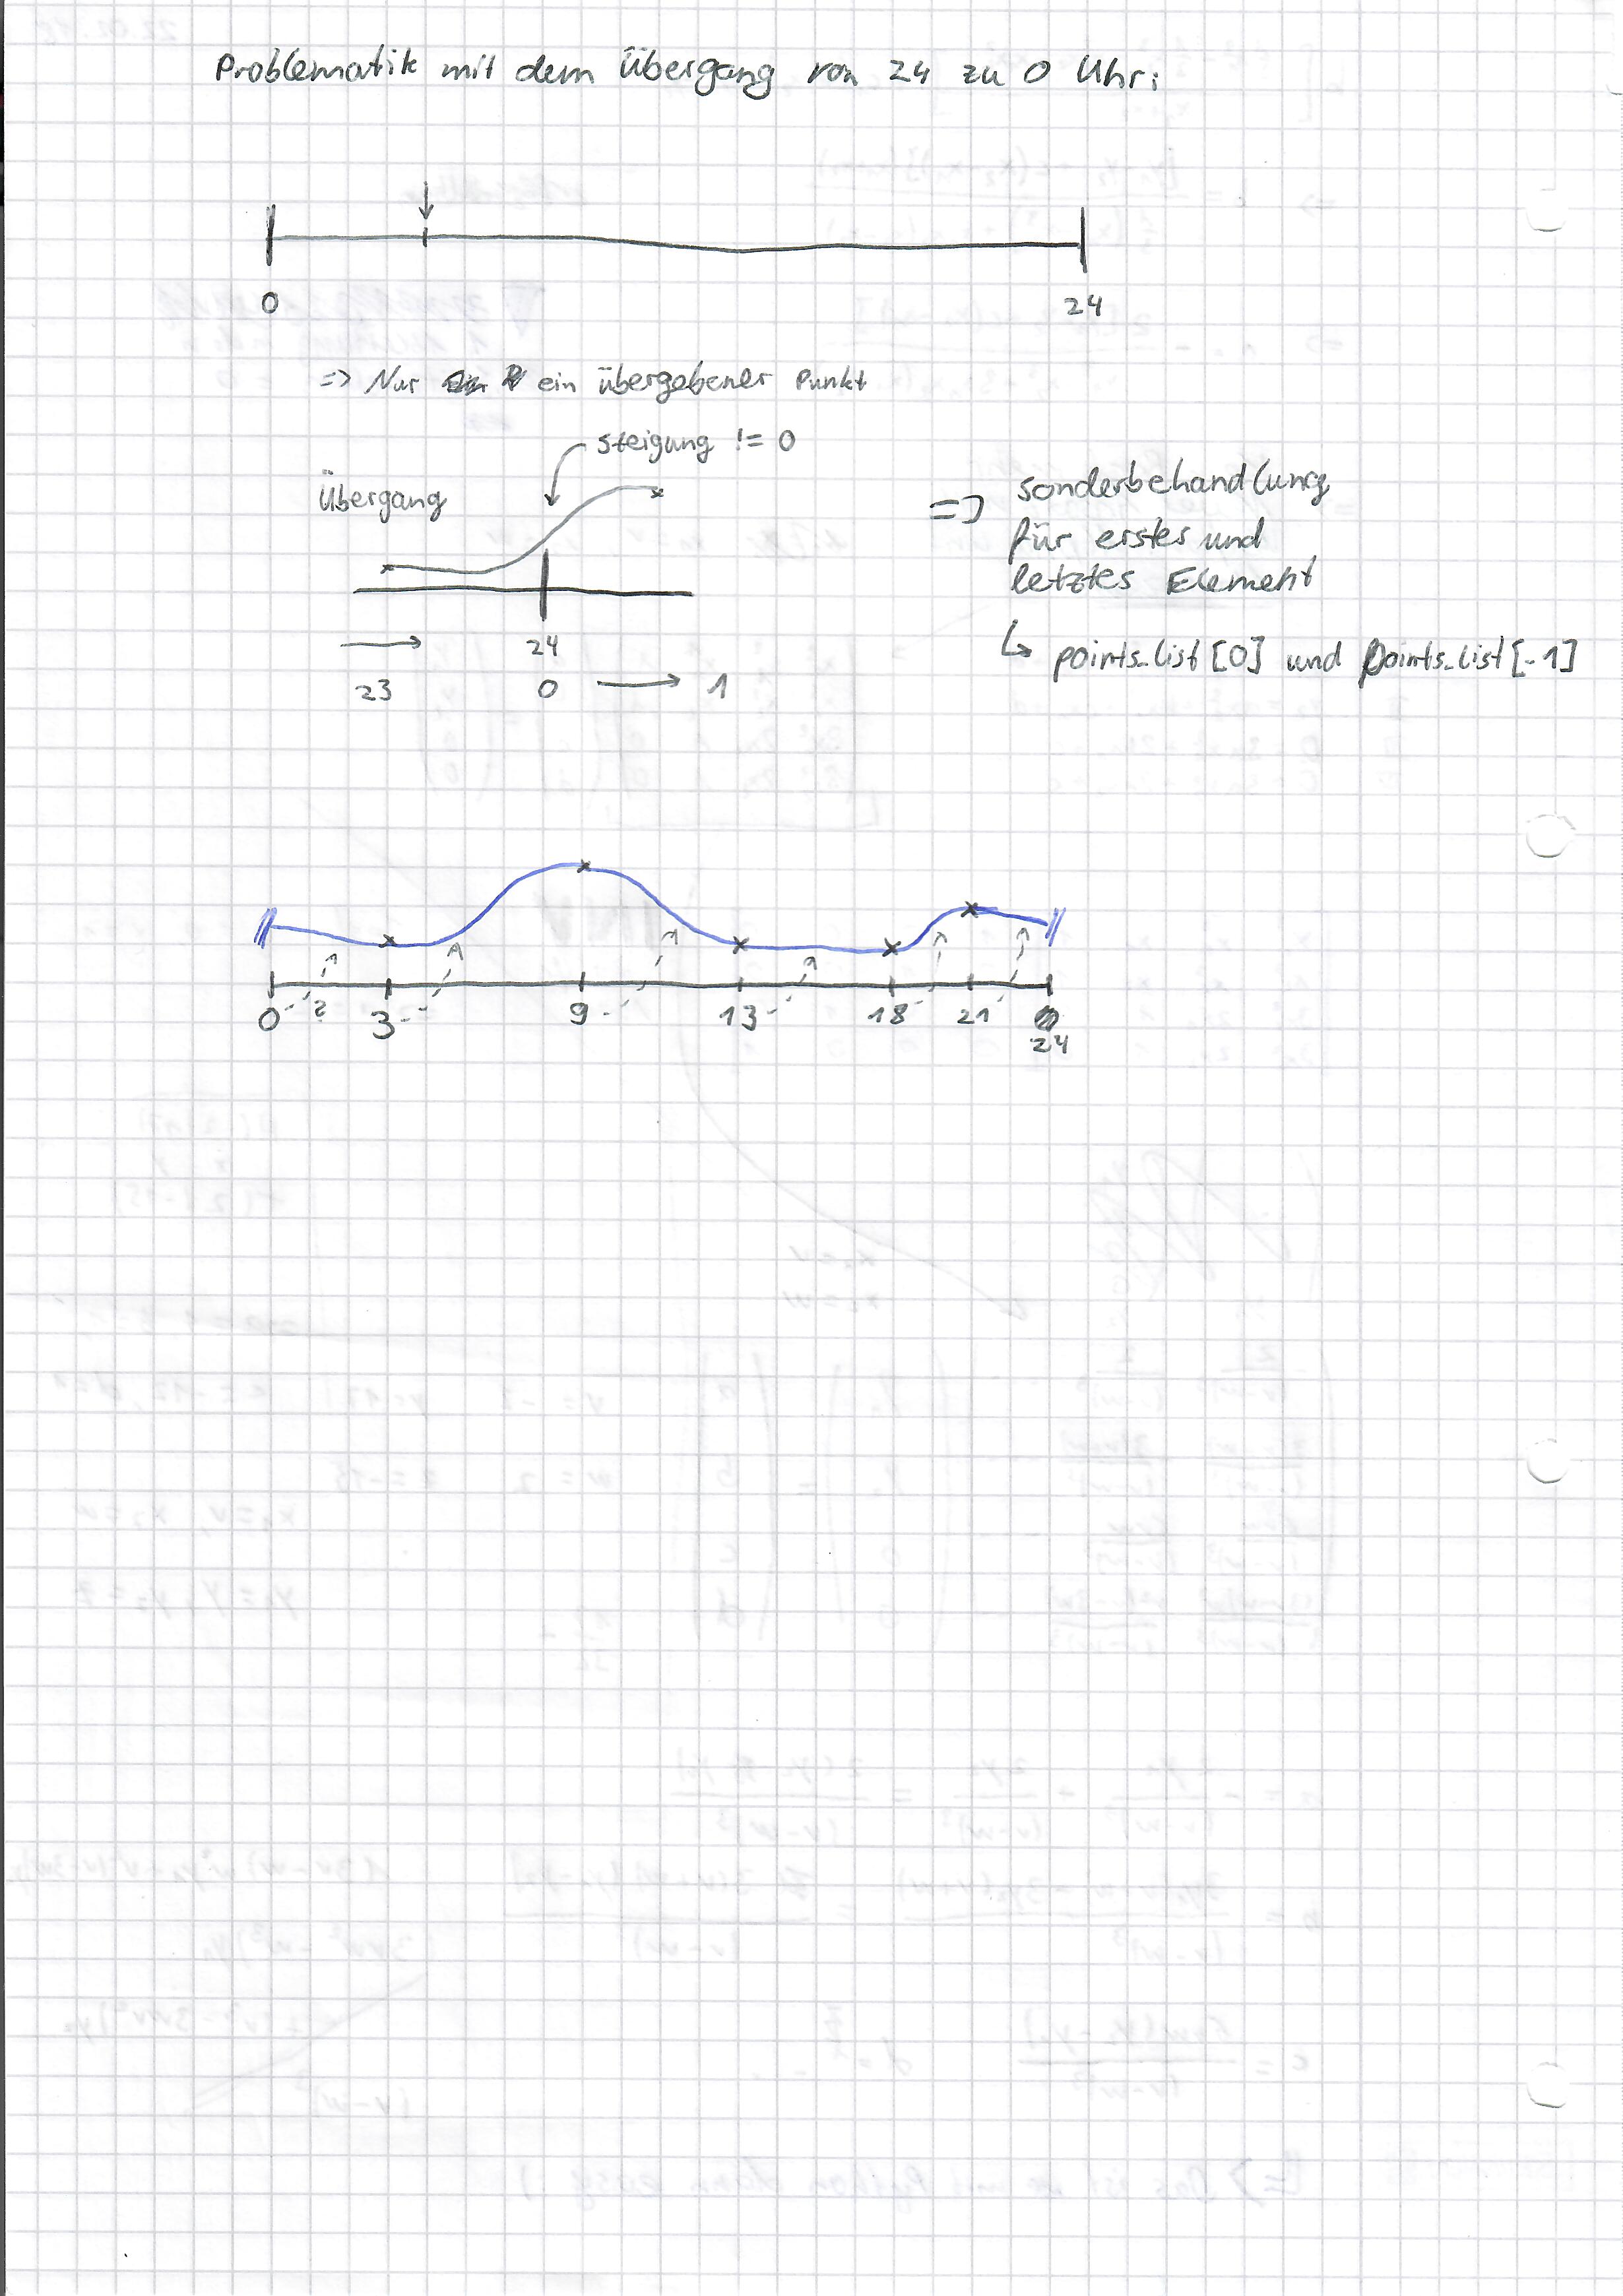 Problematik mit dem Übergang von 24 zu 0 Uhr:
0 24
=> Nur ein übergebener Punkt
steigung != 0
Übergang
=> sonderbehandlung
für erstes und
letztes Element
↳ points_list[0] und points_list[-1]
24
23 0 → 1
0 ? 3 9 13 18 21
24